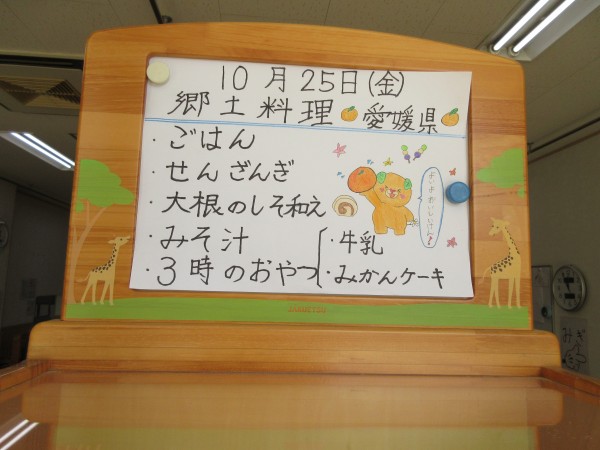 10月25日(金)
郷土料理 愛媛県
・ごはん
・せんざんぎ
・大根のしそ和え
・みそ汁
・3時のおやつ
・牛乳
・みかんケーキ